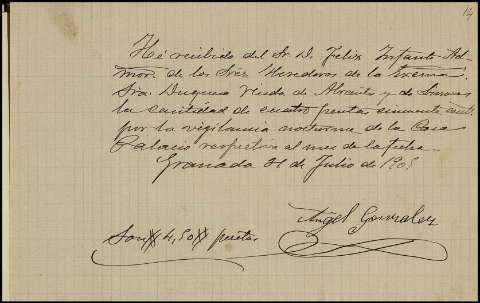 14
He recibido del Sr. D. Felix Infante Ad-
mor. de los Sres. Herederos de la Excma.
Sra. Duquesa Viuda de Abrantes y de Linares
la cantidad de cuatro pesetas cincuenta cents.
por la vigilancia nocturna de la Casa
Palacio respectiva al mes de la fecha.
Granada 31 de Julio de 190
Angel Gonzalez
Son 4,50 pesetas